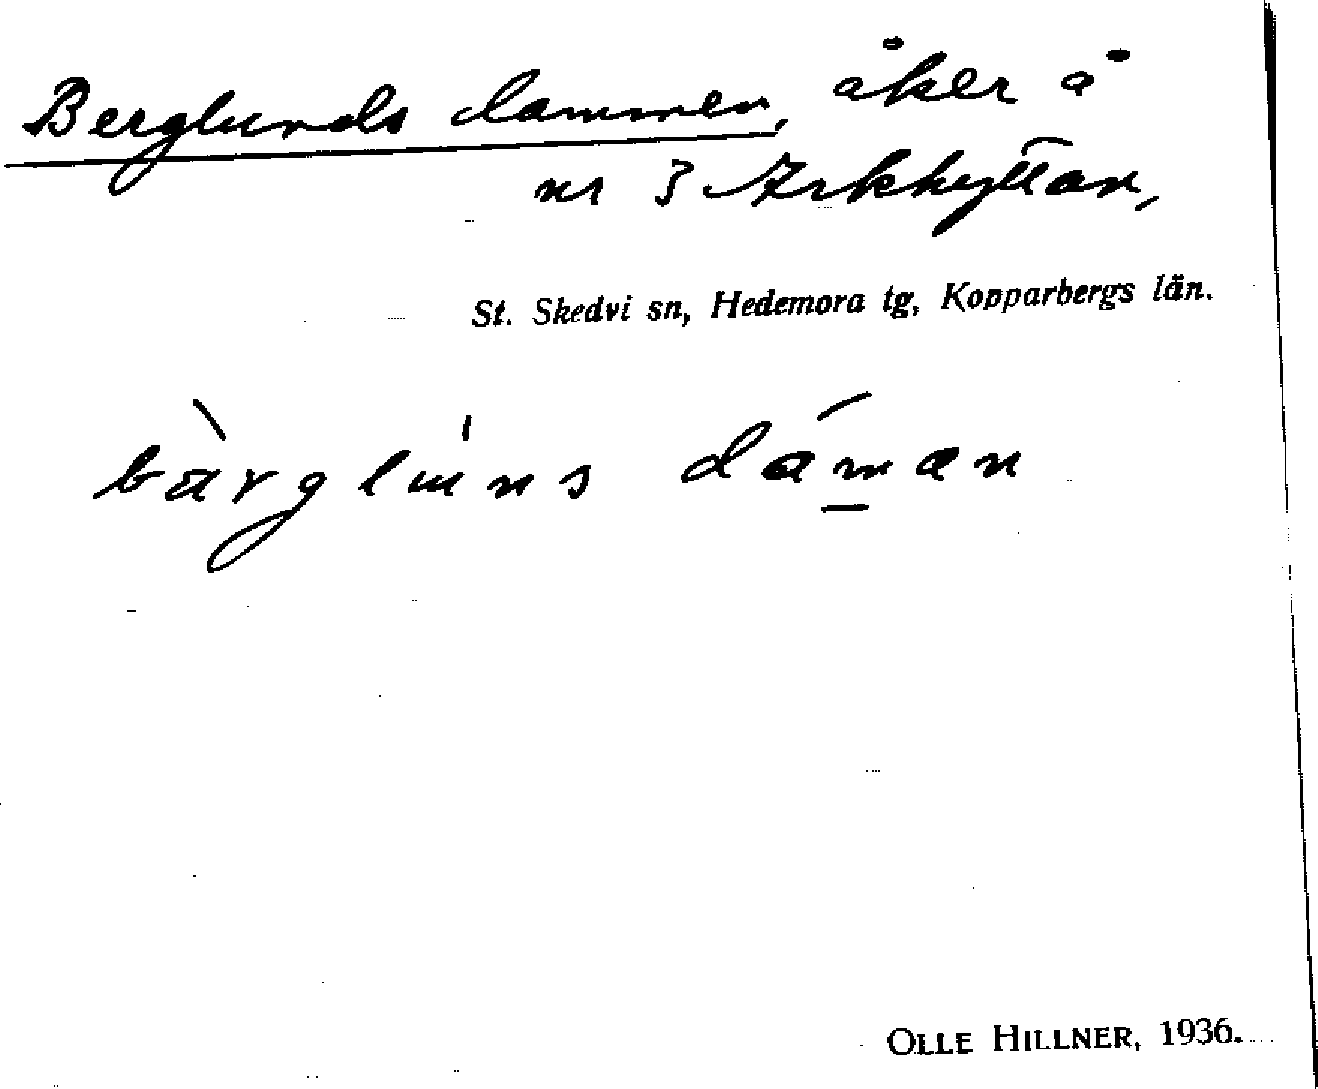 Berglunds dammen, åker å
nr 3 Arkhyttan,
St. Skedvi sn, Hedemora tg, Kopparbergs län.
bàrgluns dáman
OLLE HILLNER, 1936.